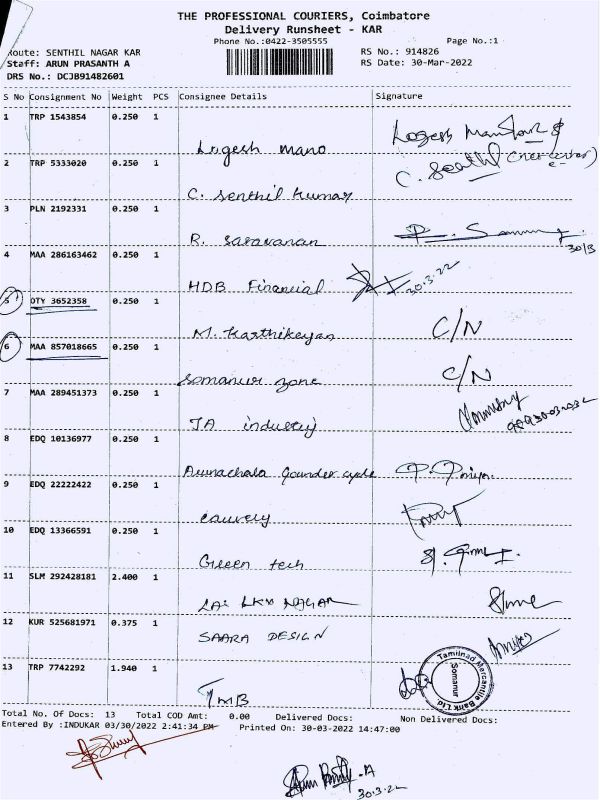 THE PROFESSIONAL COURIERS, Coimbatore
Delivery Runsheet - KAR
Phone No.:0422-3505555 Page No.:1
Route: SENTHIL NAGAR KAR RS No.: 914826
Staff: ARUN PRASANTH A RS Date: 30-Mar-2022
DRS No.: DCJB91482601
S No Consignment No Weight PCS Consignee Details Signature
1 TRP 1543854 0.250 1
Logesh Mano
2 TRP 5333020 0.250 1
C. Senthil Kumar
3 PLN 2192331 0.250 1
R. Saravanan 30/3
4 MAA 286163462 0.250 1
HDB Financial 30.3.22
5 OTY 3652358 0.250 1
M. Karthikeyan C/N
6 MAA 857018665 0.250 1
Somanur zone C/N
7 MAA 289451373 0.250 1
JA industry
8 EDQ 10136977 0.250 1
Arunachala Gounder cycle P. Priya.
9 EDQ 22222422 0.250 1
cauvery
10 EDQ 13366591 0.250 1
Green tech
11 SLM 292428181 2.400 1
12 KUR 525681971 0.375 1
SAARA DESIGN
13 TRP 7742292 1.940 1
TMB
Tamilnad Mercantile Bank Ltd
Somanur
Total No. Of Docs: 13 Total COD Amt: 0.00 Delivered Docs: Non Delivered Docs:
Entered By :INDUKAR 03/30/2022 2:41:34 PM Printed On: 30-03-2022 14:47:00
30.3.22